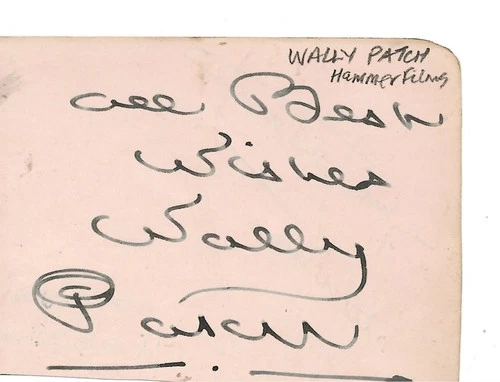 WALLY PATCH
Hammer Films
all Best
Wishes
Wally
Patch